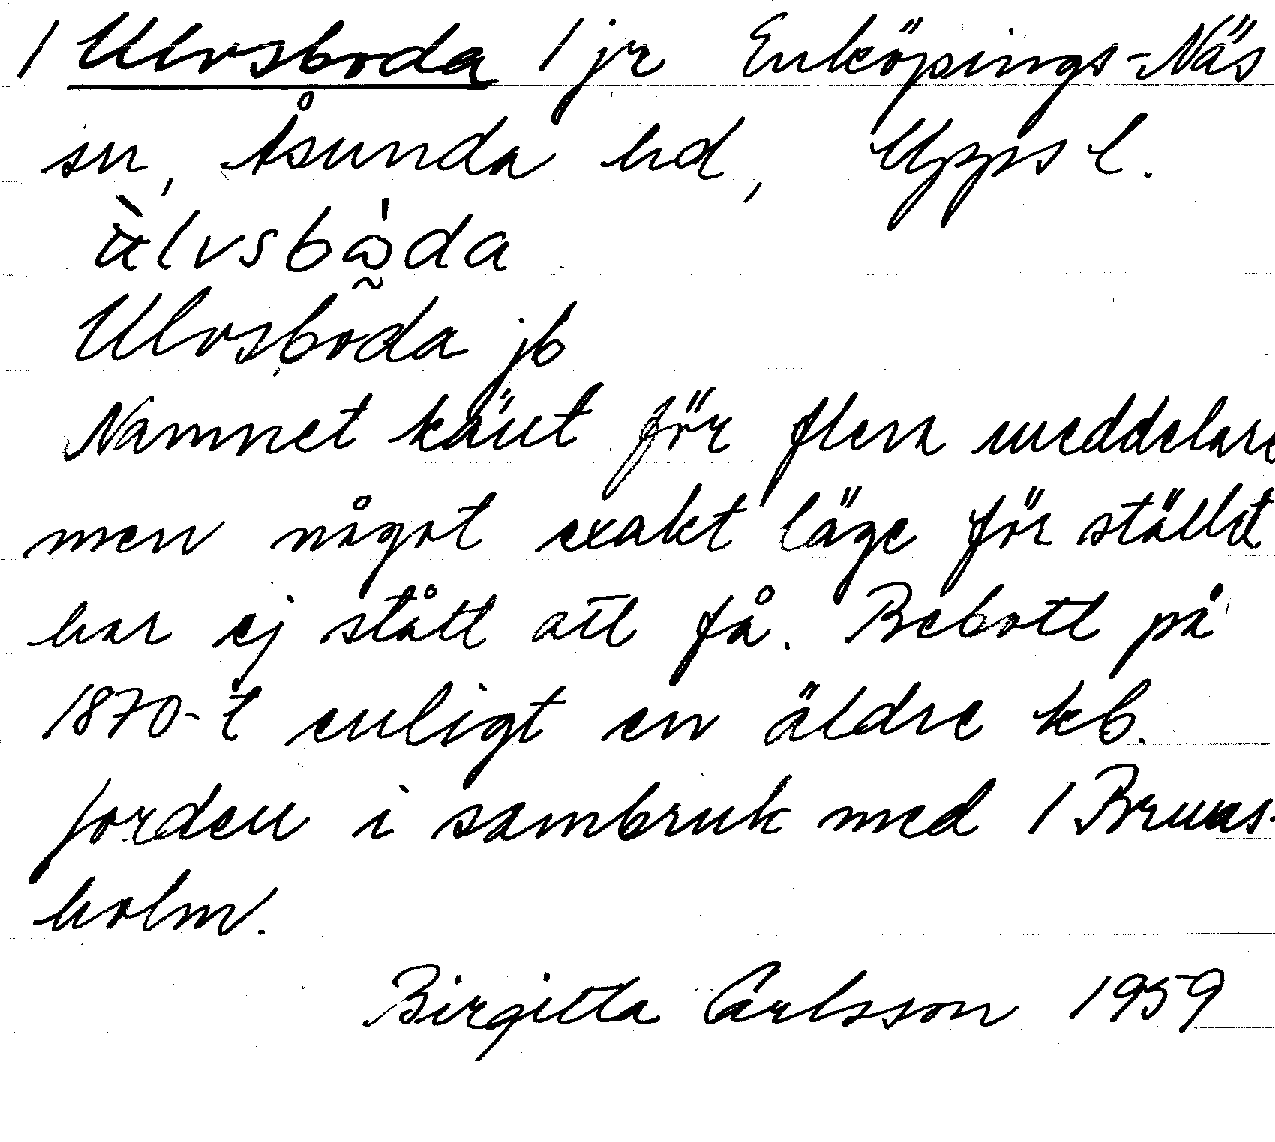 / Ulvsboda / jr Enköpings-Näs
sn, Åsunda hd, Upps l.
ùlvsbωda
Ulvsboda jb
Namnet känt för flera meddelare
men något exakt läge för stället
har ej stått att få. Bebott på
1870-t enligt en äldre kb.
Jorden i sambruk med /
holm.
Birgitta Carlsson 1959